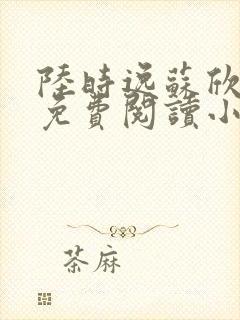 陸時逸蘇欣
免費閱讀小
茶麻